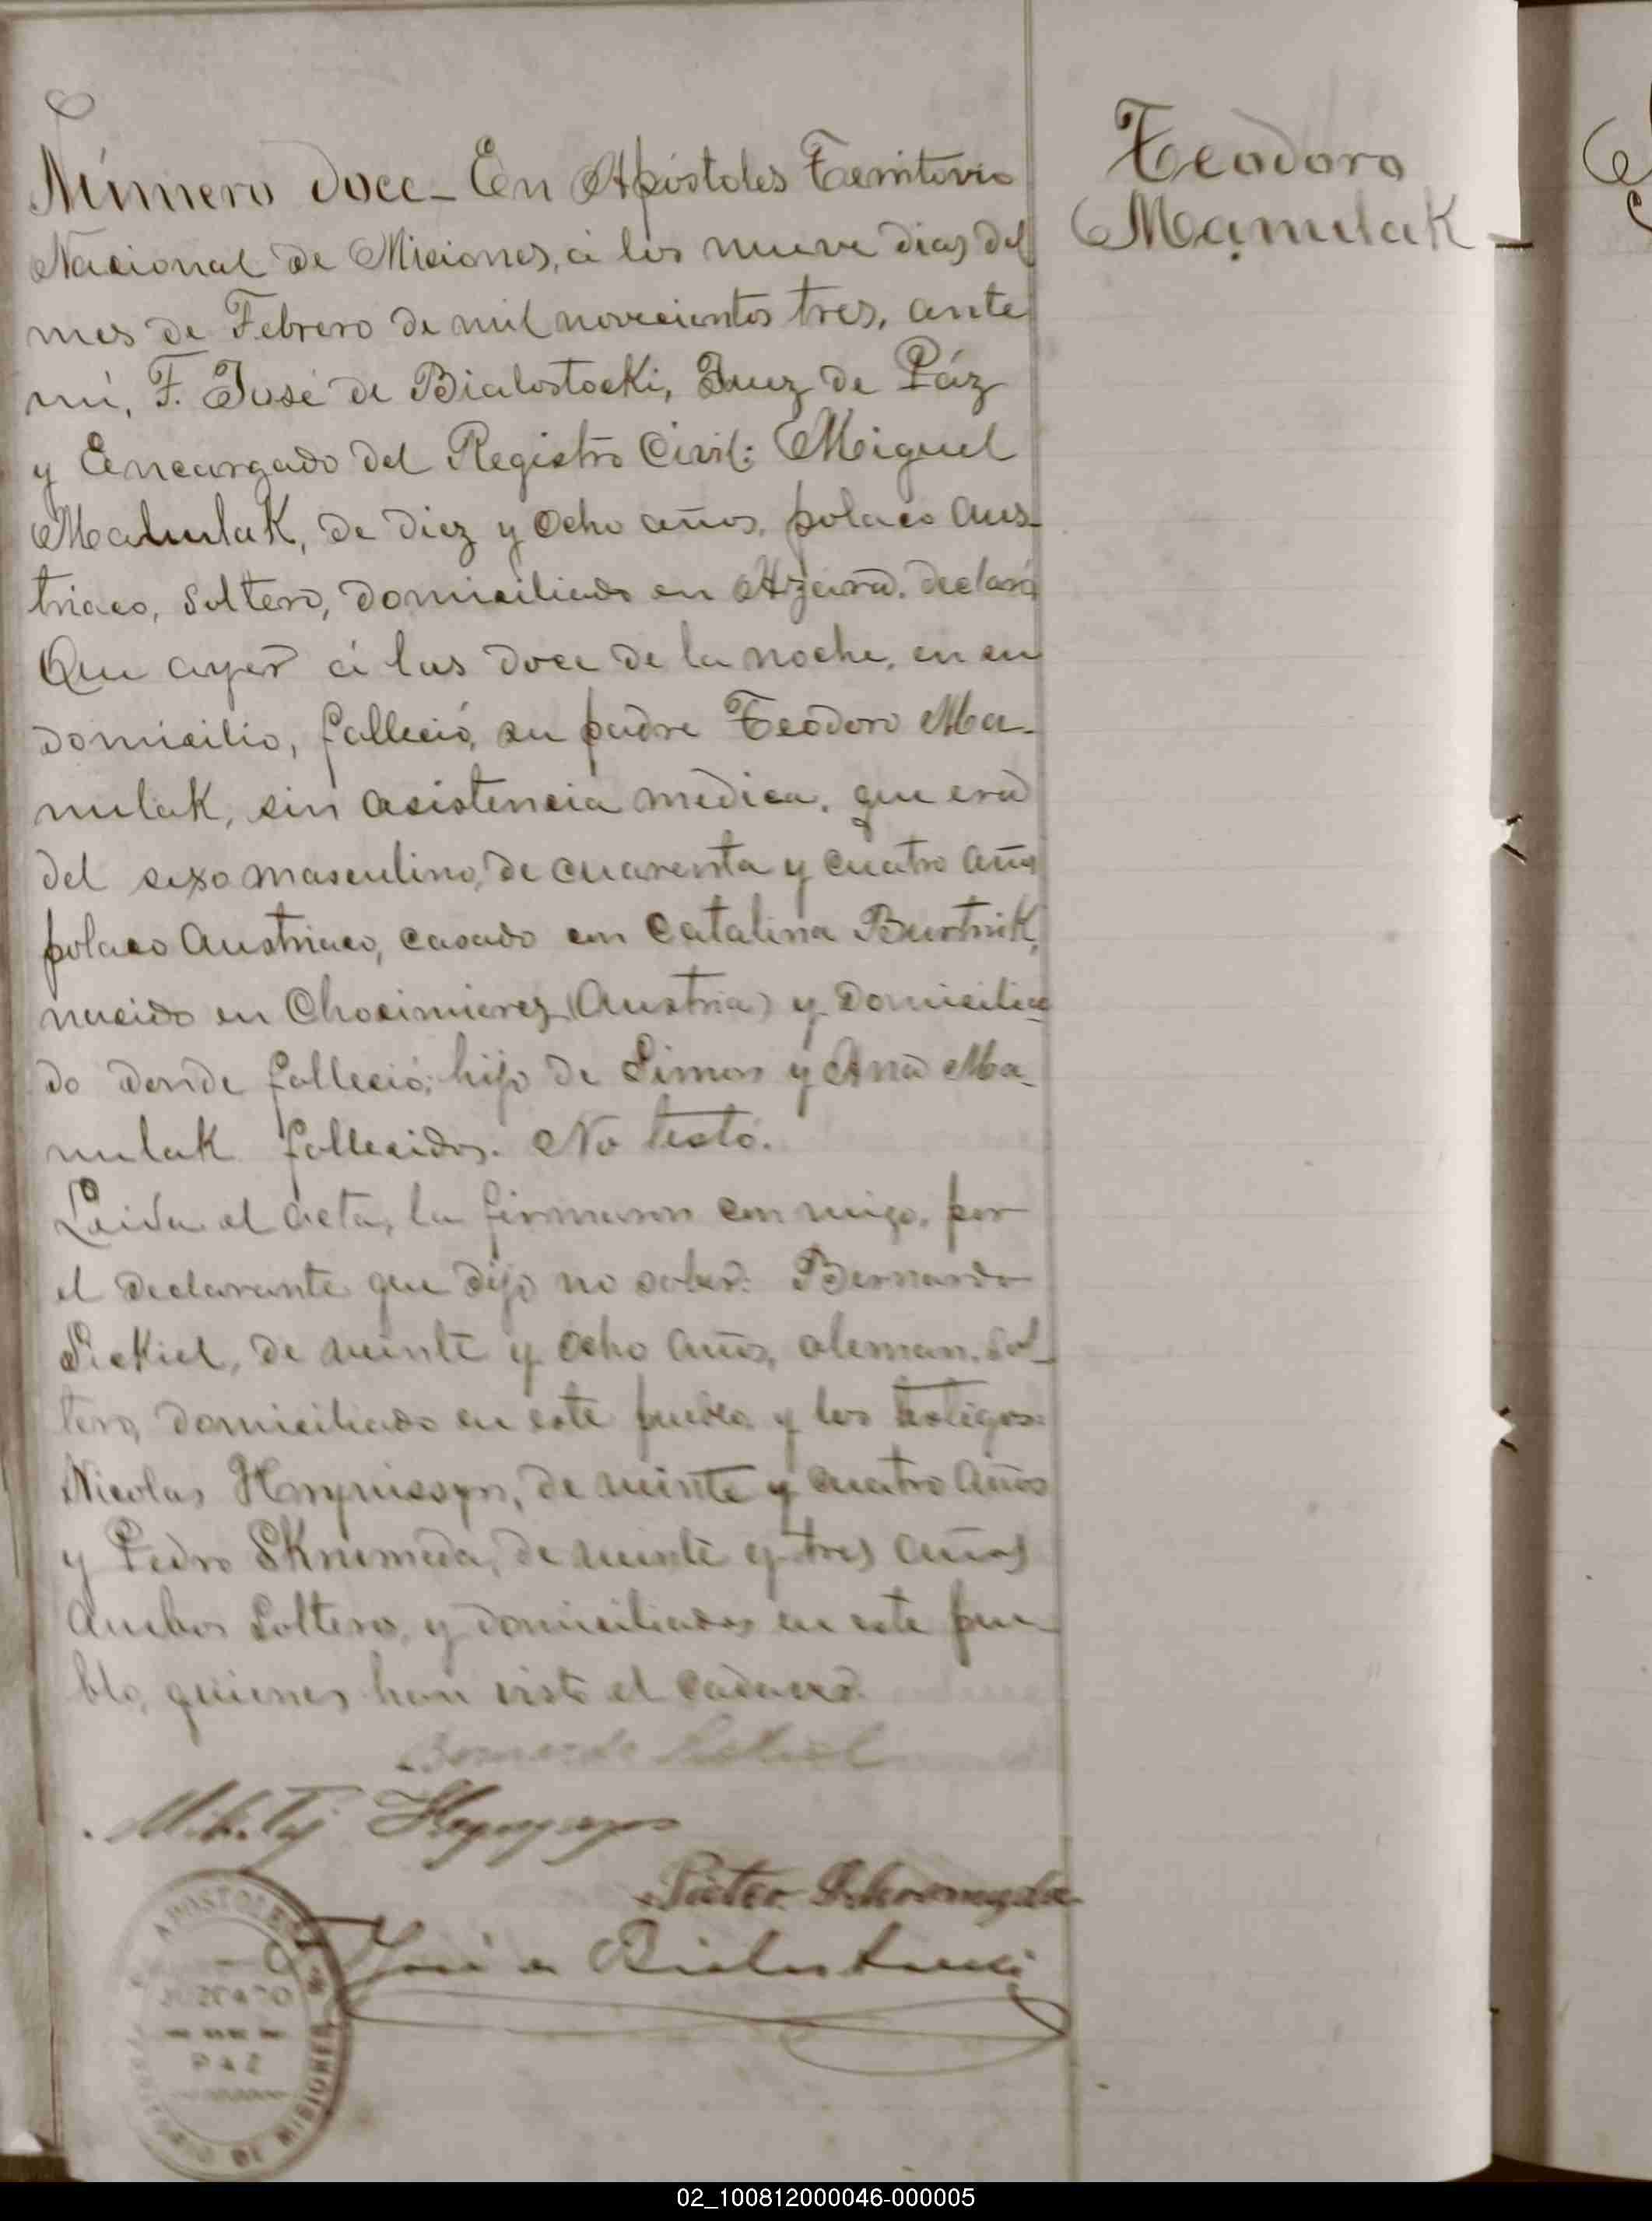 Número doce_ En Apóstoles Territorio
Nacional de Misiones, á los nueve dias del
mes de Febrero de mil novecientos tres, ante
mí, F. José de Bialostocki, Juez de Páz
y Encargado del Registro Civil: Miguel
Malulak, de diez y ocho años, polaco aus-
triaco, soltero, domiciliado en Azara, declaró
Que ayer á las doce de la noche, en su
domicilio, falleció, su padre Teodoro Ma-
nulak, sin asistencia medica, que era
del sexo masculino, de cuarenta y cuatro años
polaco austriaco, casado con Catalina Burtnik,
nacido en Chocimierz (Austria) y domicilia
do donde falleció; hijo de Simon y Ana Ma-
nulak fallecidos. No testó.
Leida el acta, la firmaron con migo, por
el declarante que dijo no saber: Bernardo
Siekiel, de veinte y ocho años, aleman, sol-
tero, domiciliado en este pueblo y los testigos:
Nicolas de veinte y cuatro años
y Pedro Skrumeda, de veinte y tres años
ambos solteros, y domiciliados en este pue-
blo, quienes han visto el cadaver.
Bernardo
José de Bialostocki
APOSTOLES
JUZGADO
DE
PAZ
DE MISIONES
Teodoro
Manulak
02_100812000046-000005